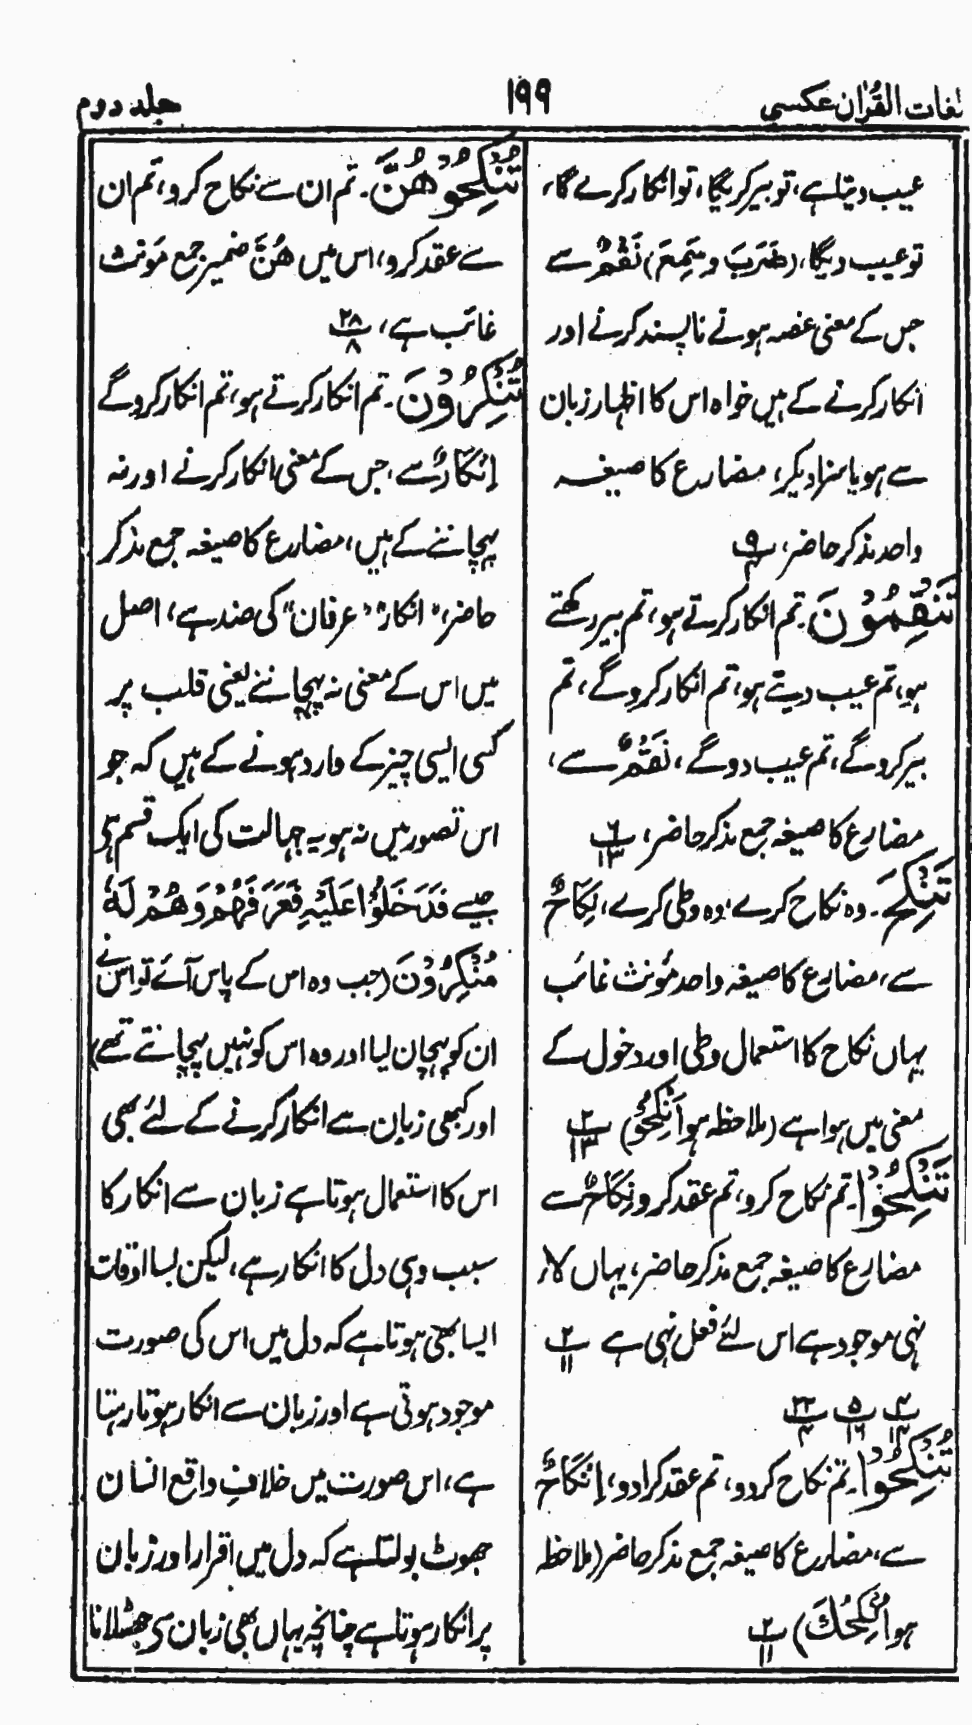 لغات القرآن عکسی
۱۹۹
جلد دوم
عیب دیتا ہے، تو بیر کریگا، تو انکار کرے گا،
تو عیب دیگا، (ضَرَبَ و سَمِعَ) نَقْمٌ سے
جس کے معنی غصہ ہونے ناپسند کرنے اور
انکار کرنے کے ہیں خواہ اس کا اظہار زبان
سے ہو یا سزا دیکر، مضارع کا صیغہ
واحد مذکر حاضر، ۹/۴
تَنْقِمُوْنَ۔ تم انکار کرتے ہو، تم بیر رکھتے
ہو، تم عیب دیتے ہو، تم انکار کروگے، تم
بیر کروگے، تم عیب دوگے، نَقْمٌ سے،
مضارع کا صیغہ جمع مذکر حاضر، ۶/۱۳
تَنْكِحَ۔ وہ نکاح کرے، وہ وطی کرے، نِكَاحٌ
سے، مضارع کا صیغہ واحد مؤنث غائب
یہاں نکاح کا استعمال وطی اور دخول کے
معنی میں ہوا ہے (ملاحظہ ہو اَنْكِحُوْا) ۲/۱۳
تَنْكِحُوْا۔ تم نکاح کرو، تم عقد کرو نِكَاحٌ سے
مضارع کا صیغہ جمع مذکر حاضر، یہاں لاء
نہی موجود ہے اس لئے فعل نہی ہے ۲/۱۱
۴/۱۴ ۵/۱۶ ۲۲/۴
تُنْكِحُوْا۔ تم نکاح کردو، تم عقد کرادو، اِنْكَاحٌ
سے، مضارع کا صیغہ جمع مذکر حاضر (ملاحظہ
ہو اُنْكِحَكَ) ۲/۱۱
تَنْكِحُوْهُنَّ۔ تم ان سے نکاح کرو، تم ان
سے عقد کرو، اس میں هُنَّ ضمیر جمع مؤنث
غائب ہے، ۲۸/۸
تُنْكِرُوْنَ۔ تم انکار کرتے ہو، تم انکار کروگے
اِنْكَارٌ سے، جس کے معنی انکار کرنے اور نہ
پہچاننے کے ہیں، مضارع کا صیغہ جمع مذکر
حاضر، "انکار" "عرفان" کی ضد ہے، اصل
میں اس کے معنی نہ پہچاننے یعنی قلب پر
کسی ایسی چیز کے وارد ہونے کے ہیں کہ جو
اس تصور میں نہ ہو یہ جہالت کی ایک قسم ہی
جیسے فَدَخَلُوْا عَلَيْهِ فَعَرَفَهُمْ وَهُمْ لَهٗ
مُنْكِرُوْنَ (جب وہ اس کے پاس آئے تو اس نے
ان کو پہچان لیا اور وہ اس کو نہیں پہچانتے تھے)
اور کبھی زبان سے انکار کرنے کے لئے بھی
اس کا استعمال ہوتا ہے زبان سے انکار کا
سبب وہی دل کا انکار ہے، لیکن بسا اوقات
ایسا بھی ہوتا ہے کہ دل میں اس کی صورت
موجود ہوتی ہے اور زبان سے انکار ہوتا رہتا
ہے، اس صورت میں خلافِ واقع انسان
جھوٹ بولتا ہے کہ دل میں اقرار اور زبان
پر انکار ہوتا ہے چنانچہ یہاں بھی زبان ہی جھٹلانا